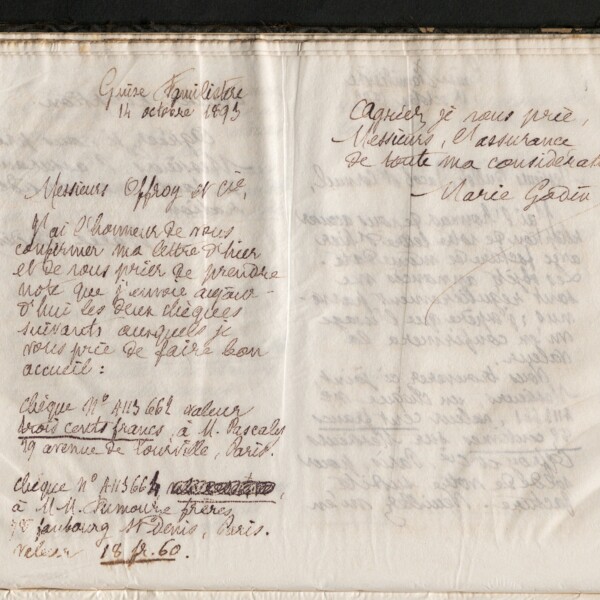 Guise Familistère
14 octobre 1893
Messieurs Offroy et Cie,
J'ai l'honneur de vous
confirmer ma lettre d'hier
et de vous prier de prendre
note que j'envoie aujour-
d'hui les deux chèques
suivants auxquels je
vous prie de faire bon
accueil :
chèque N° A113662 valeur
trois cents francs, à M. Pascaly
19 avenue de Tourville, Paris.
chèque N° A113664
à M.M. Dumoure frères,
faubourg St Denis, Paris.
valeur 18 fr. 60.
Agréez je vous prie,
Messieurs, l'assurance
de toute ma considérat
Marie Godin